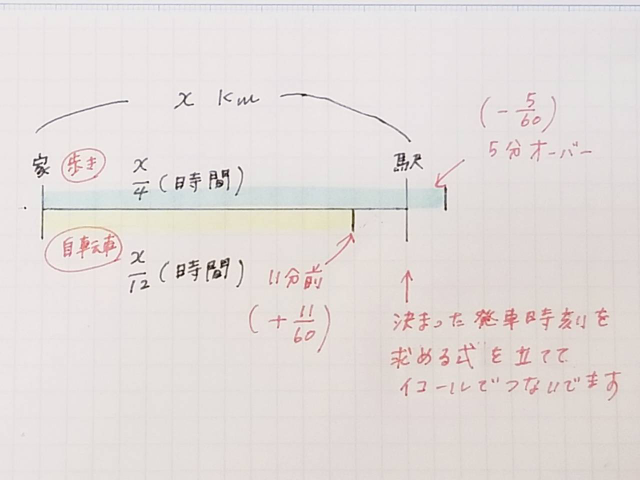 x km
(-5/60)
5分オーバー
家 歩き x/4(時間) 駅
自転車 x/12(時間) 11分前
(+11/60)
決まった発車時刻を
求める式を立てて
イコールでつないでます